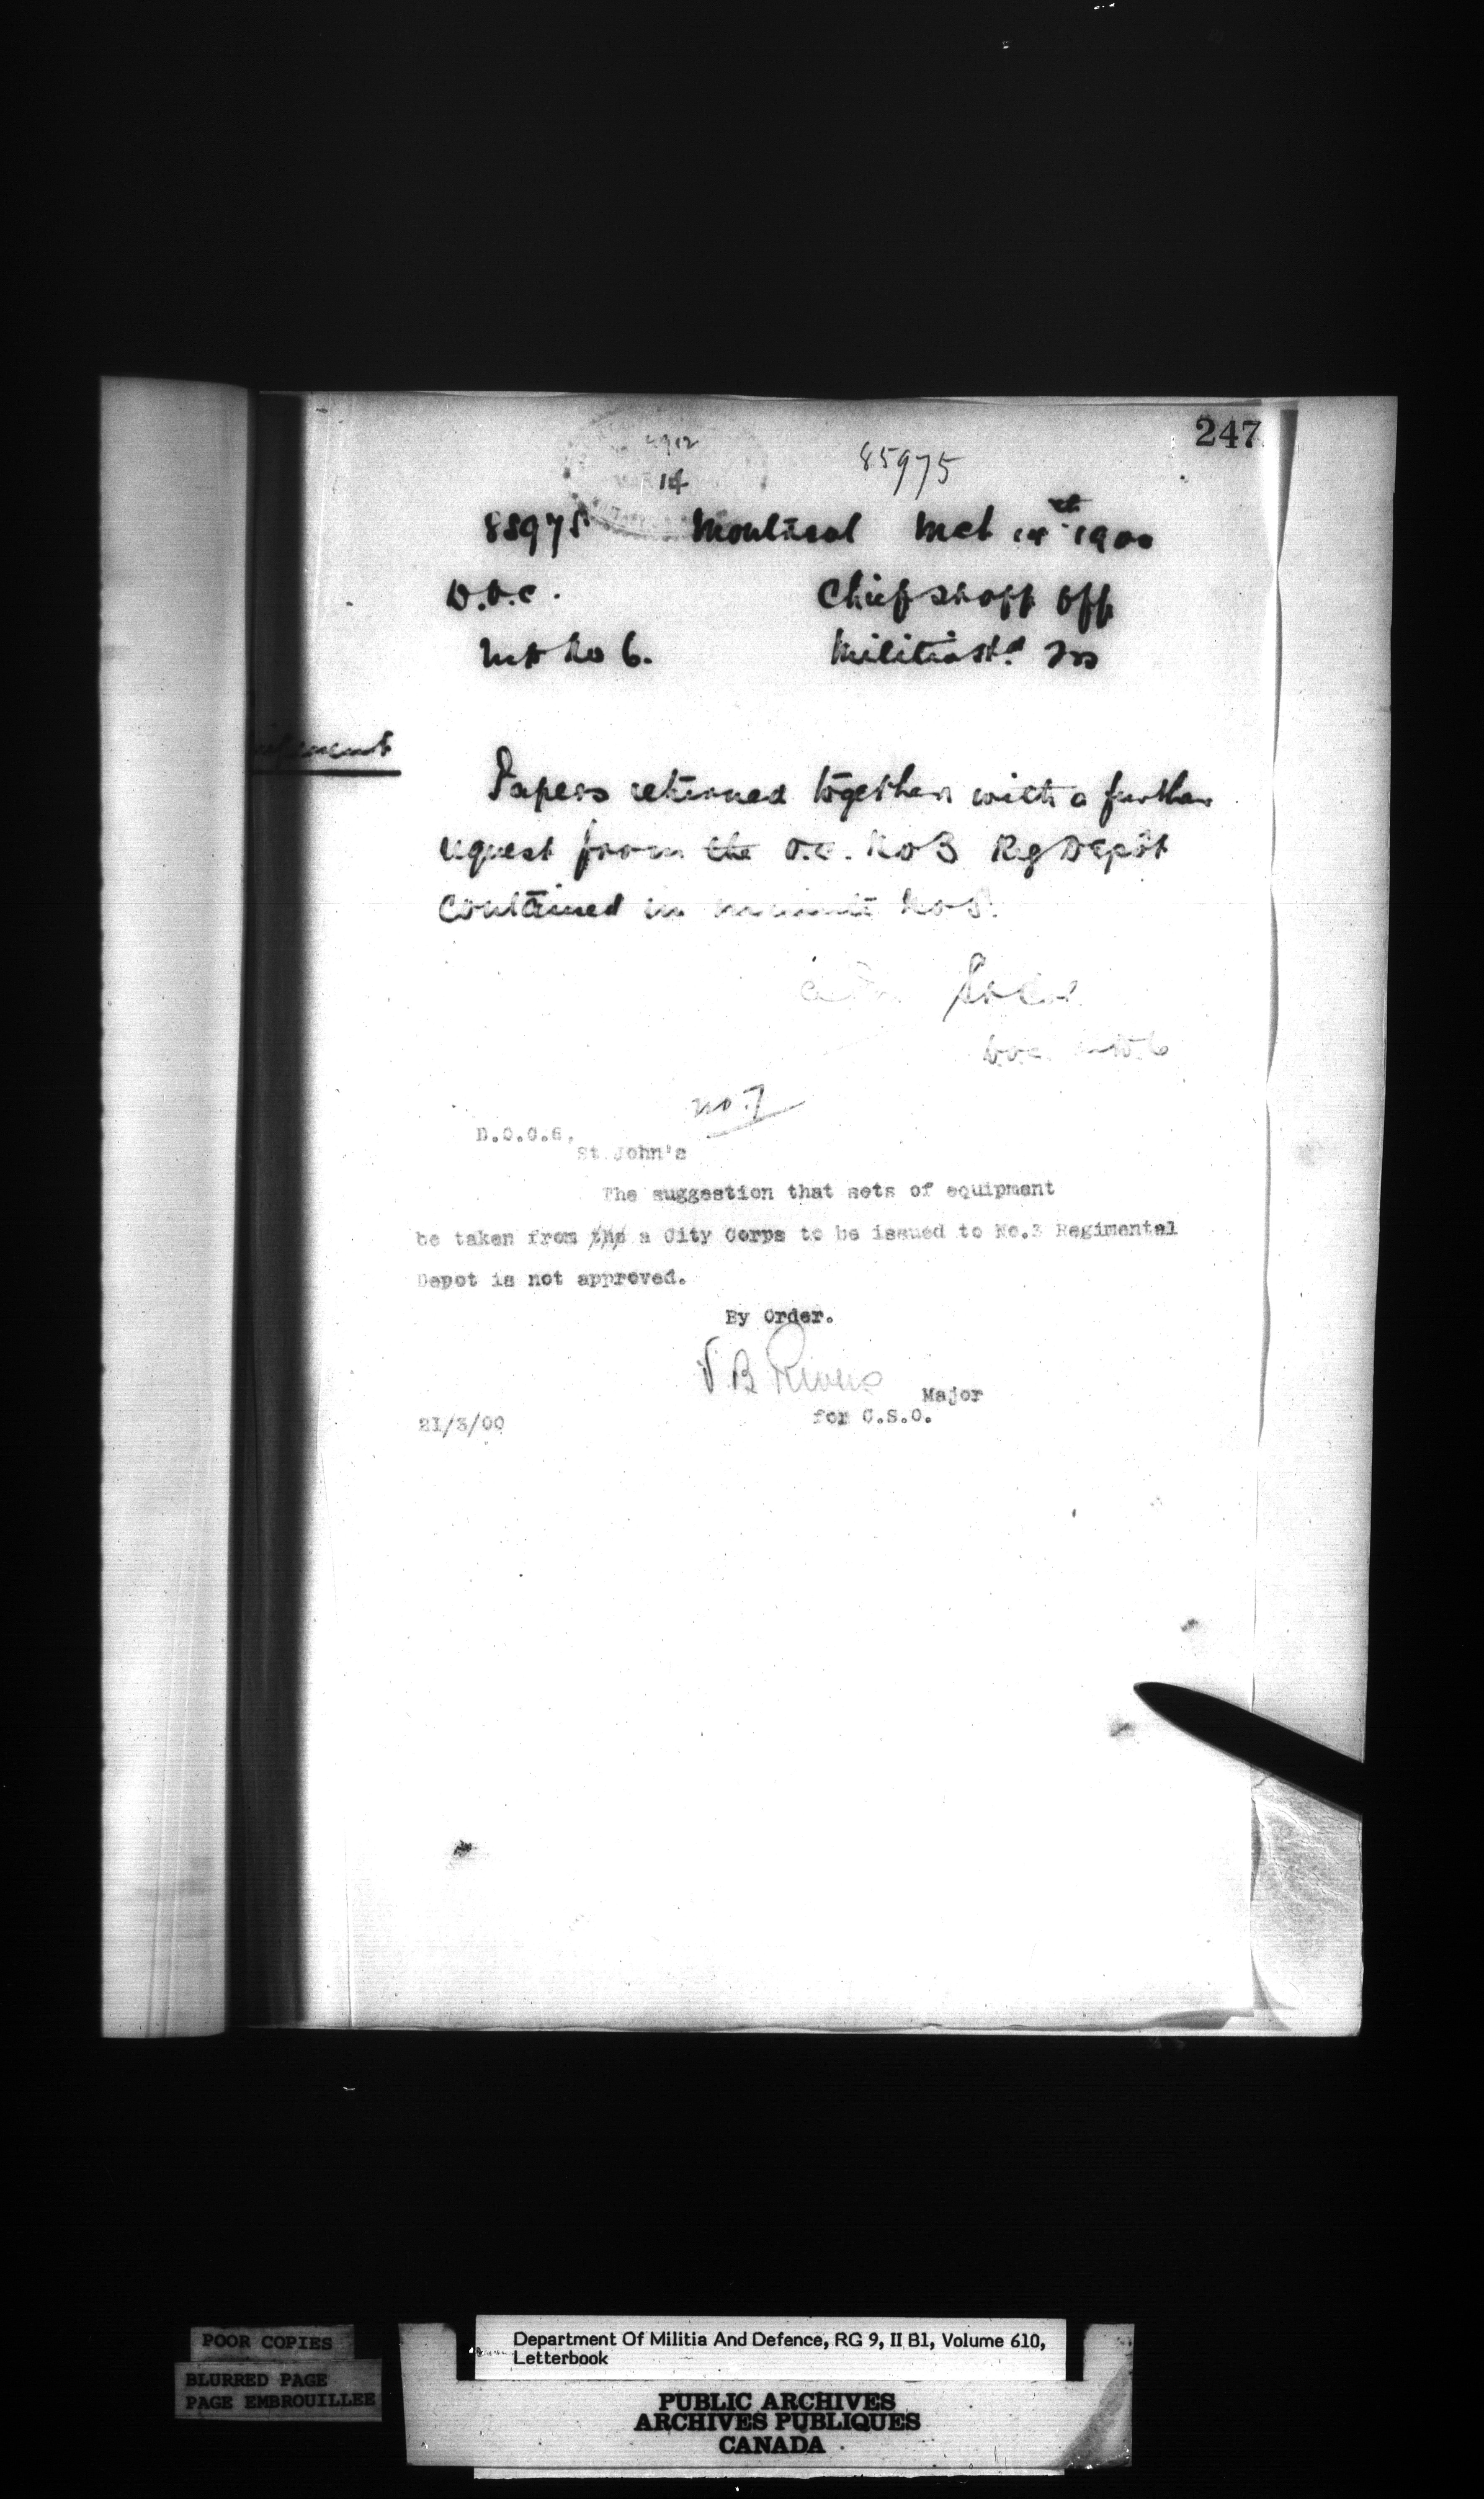 247
85975
14
85975 Montreal Mch 14th 1900
D.O.C. Chief Staff Off
M D No 6. Militia
Papers returned together with a further
request from the O.C. No 3 Reg Depôt
contained in minute No 5.
Lt Col
D.O.C. M.D. 6
No. 7
D.O.C.6,
St. John's
The suggestion that sets of equipment
be taken from the a City Corps to be issued to No.3 Regimental
Depot is not approved.
By Order.
V. B. Rivers
Major
for C.S.O.
21/3/00
POOR COPIES
BLURRED PAGE
PAGE EMBROUILLEE
Department Of Militia And Defence, RG 9, II B1, Volume 610,
Letterbook
PUBLIC ARCHIVES
ARCHIVES PUBLIQUES
CANADA